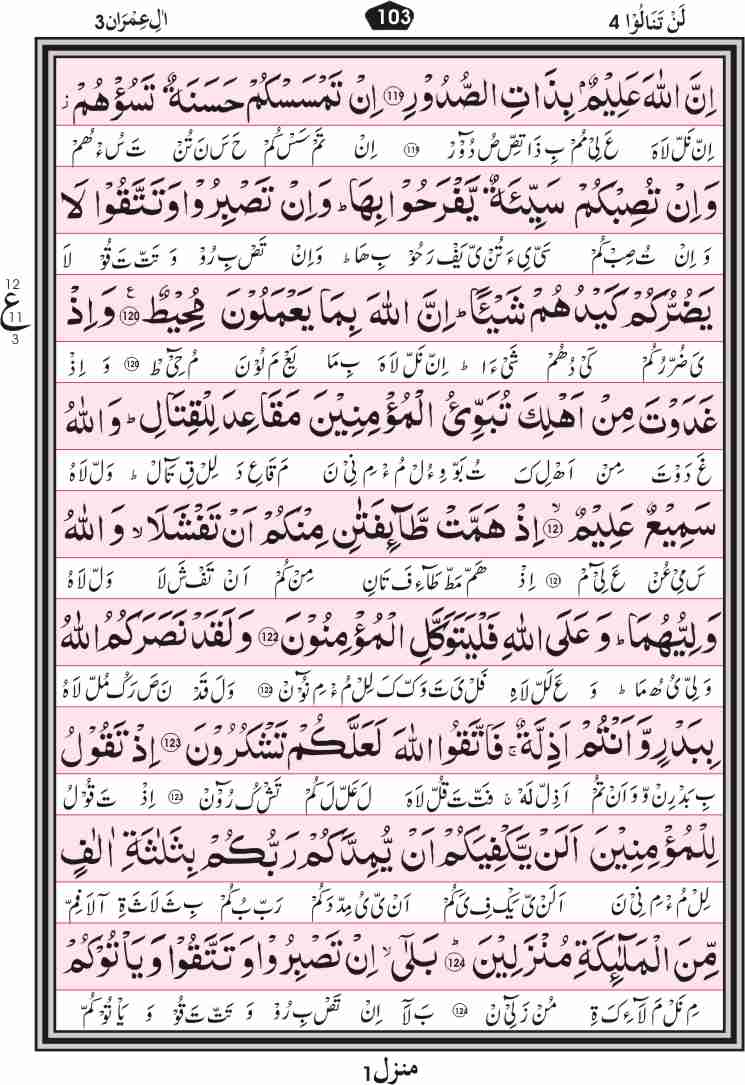 لَنْ تَنَالُوْا 4
103
اٰلِ عِمْرَان3
اِنَّ اللّٰهَ عَلِیْمٌۢ بِذَاتِ الصُّدُوْرِ ۝119 اِنْ تَمْسَسْكُمْ حَسَنَةٌ تَسُؤْهُمْ ز
اِنّ نَلّ لَاهَ عَ لِیْ مُمْ بِ ذَا تِصّ صُ دُوْٓرْ 119 اِنْ تَمْ سَسْ كُمْ حَ سَ نَ تُنْ تَ سُ ءْ هُمْ
وَاِنْ تُصِبْكُمْ سَیِّئَةٌ یَّفْرَحُوْا بِهَا ؕ وَاِنْ تَصْبِرُوْا وَتَتَّقُوْا لَا
وَ اِنْ تُ صِبْ كُمْ سَیْ یِ ءَ تُنْ یَ یَفْ رَ حُوْ بِ هَا ط وَاِنْ تَصْ بِ رُوْ وَ تَتْ تَ قُوْ لَا
یَضُرُّكُمْ كَیْدُهُمْ شَیْـًٔا ؕ اِنَّ اللّٰهَ بِمَا یَعْمَلُوْنَ مُحِیْطٌ ۝120 ع وَاِذْ
12
ع
11
3
یَ ضُرْ رُ كُمْ كَیْ دُ هُمْ شَیْ ءَا ط اِنّ نَلّ لَاهَ بِ مَا یَعْ مَ لُوْ نَ مُ حِیْٓ طْ 120 وَ اِذْ
غَدَوْتَ مِنْ اَهْلِكَ تُبَوِّئُ الْمُؤْمِنِیْنَ مَقَاعِدَ لِلْقِتَالِ ؕ وَاللّٰهُ
غَ دَ وْ تَ مِنْ اَهْ لِ كَ تُ بَوْ وِ ءُ لْ مُ ءْ مِ نِیْ نَ مَ قَا عِ دَ لِلْ قِ تَآلْ ط وَلّ لَاهُ
سَمِیْعٌ عَلِیْمٌ ۝12 ۙ اِذْ هَمَّتْ طَّآىِٕفَتٰنِ مِنْكُمْ اَنْ تَفْشَلَا ۙ وَاللّٰهُ
سَ مِیْ عُنْ عَ لِیْٓ مْ 12 اِذْ هَمّ مَطّ طَآءِ فَ تَانِ مِنْ كُمْ اَنْ تَفْ شَ لَا وَلّ لَاهُ
وَلِیُّهُمَا ؕ وَعَلَی اللّٰهِ فَلْیَتَوَكَّلِ الْمُؤْمِنُوْنَ ۝122 وَلَقَدْ نَصَرَكُمُ اللّٰهُ
وَ لِیْ یُ هُ مَا ط وَ عَ لَلّ لَاهِ فَلْ یَ تَ وَكْ كَ لِلْ مُ ءْ مِ نُوْٓنْ 122 وَ لَ قَدْ نَ صَ رَ كُ مُلّ لَاهُ
بِبَدْرٍ وَّاَنْتُمْ اَذِلَّةٌ ۚ فَاتَّقُوا اللّٰهَ لَعَلَّكُمْ تَشْكُرُوْنَ ۝123 اِذْ تَقُوْلُ
بِ بَدْ رِنْ وَّ وَ اَنْ تُمْ اَذِلّ لَهْ ج فَتْ تَ قُلّ لَاهَ لَ عَلّ لَ كُمْ تَشْ كُ رُوْٓنْ 123 اِذْ تَ قُوْلُ
لِلْمُؤْمِنِیْنَ اَلَنْ یَّكْفِیَكُمْ اَنْ یُّمِدَّكُمْ رَبُّكُمْ بِثَلٰثَةِ اٰلٰفٍ
لِلْ مُ ءْ مِ نِیْ نَ اَلَنْ یَ یَكْ فِ یَ كُمْ اَنْ یُ یُ مِدْ دَ كُمْ رَبْ بُ كُمْ بِ ثَ لَا ثَ ةِ آ لَا فِمْ
مِّنَ الْمَلٰٓىِٕكَةِ مُنْزَلِیْنَ ۝124 ؕ بَلٰۤی ۙ اِنْ تَصْبِرُوْا وَتَتَّقُوْا وَیَاْتُوْكُمْ
مِ نَلْ مَ لَآءِ كَ ةِ مُنْ زَ لِیْٓ نْ 124 بَ لَآ اِنْ تَصْ بِ رُوْ وَ تَتْ تَ قُوْ وَ یَاْ تُوْ كُمْ
منزل1